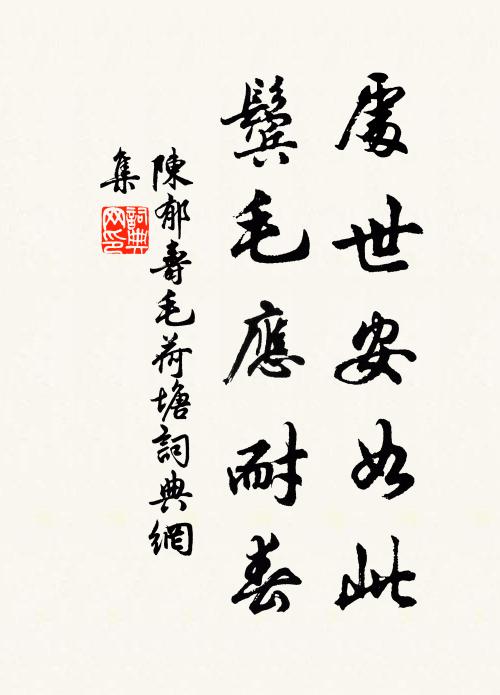 處世安如此
鬢毛應耐春
陳郁壽毛荷塘詞典網
集
詞典
网印